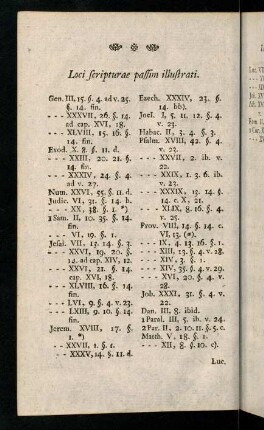 Loci scripturae passim illustrati.
Gen. III, 15. §. 4. ad v. 25.
§. 14. fin.
- - - XXXVII, 26. §. 14.
ad cap. XVI, 18.
- - - XLVIII, 15. 16. §.
14. fin.
Exod. X. 8. §. 11. d.
- - - XXIII, 20. 21. §.
14. fin.
- - - XXXIV, 24. §. 4.
ad v. 27.
Num. XXVI, 55. §. 11. d.
Judic. VI, 31. §. 14. b.
- - - XX, 38. §. 1. *)
1 Sam. II, 10. 35. §. 14.
fin.
- - - VI, 19. §. 1.
Jesai. VII, 13. 14. §. 3.
- - - XXVI, 19. 20. §.
14. ad cap. XIV, 12.
- - - XXVI, 21. §. 14.
cap. XVI, 18.
- - - XLVIII, 16. §. 14.
fin.
- - - LVI, 9. §. 4. v. 23.
- - - LXIII, 9. 10. §. 14.
fin.
Jerem. XVIII, 17. §.
1. *)
- - XXVII, 1. §. 1.
- - - XXXV, 14. §. 11. d.
Ezech. XXXIV, 23. §.
14. bb).
Joel. I, 5. 11. 12. §. 4.
v. 25.
Habac. II, 3. 4. §. 3.
Psalm. XVIII, 42. §. 4.
v. 21.
- - - XXVII, 2. ib. v.
22.
- - - XXIX, 1. 3. 6. ib.
v. 23.
- - - XXXIX, 13. §. 14.
f. c. X, 21.
- - - XLIX, 8. 16. §. 4.
v. 25.
Prov. VIII, 14. §. 14. c.
VI, 13. (*).
- - - IX, 4. 13. 16. §. 1.
- - - XIII, 23. §. 4. v. 28.
- - - XIV, 3. §. 1.
- - - XIV, 35. §. 4. v. 29.
- - - XVI, 20. §. 4. v.
28.
Job. XXXI, 31. §. 4. v.
22.
Dan. III, 8. ibid.
1 Paral. III, 5. ib. v. 24.
2 Par. II, 2. 10. 11. §. 5. c.
Matth. V, 18. §. 1.
- - - XII, 8. §. 10. c).
Luc.